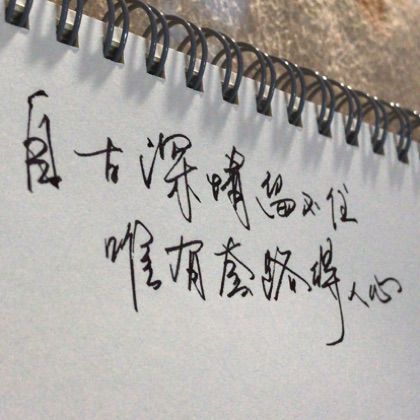 自古深情留不住
唯有套路得人心